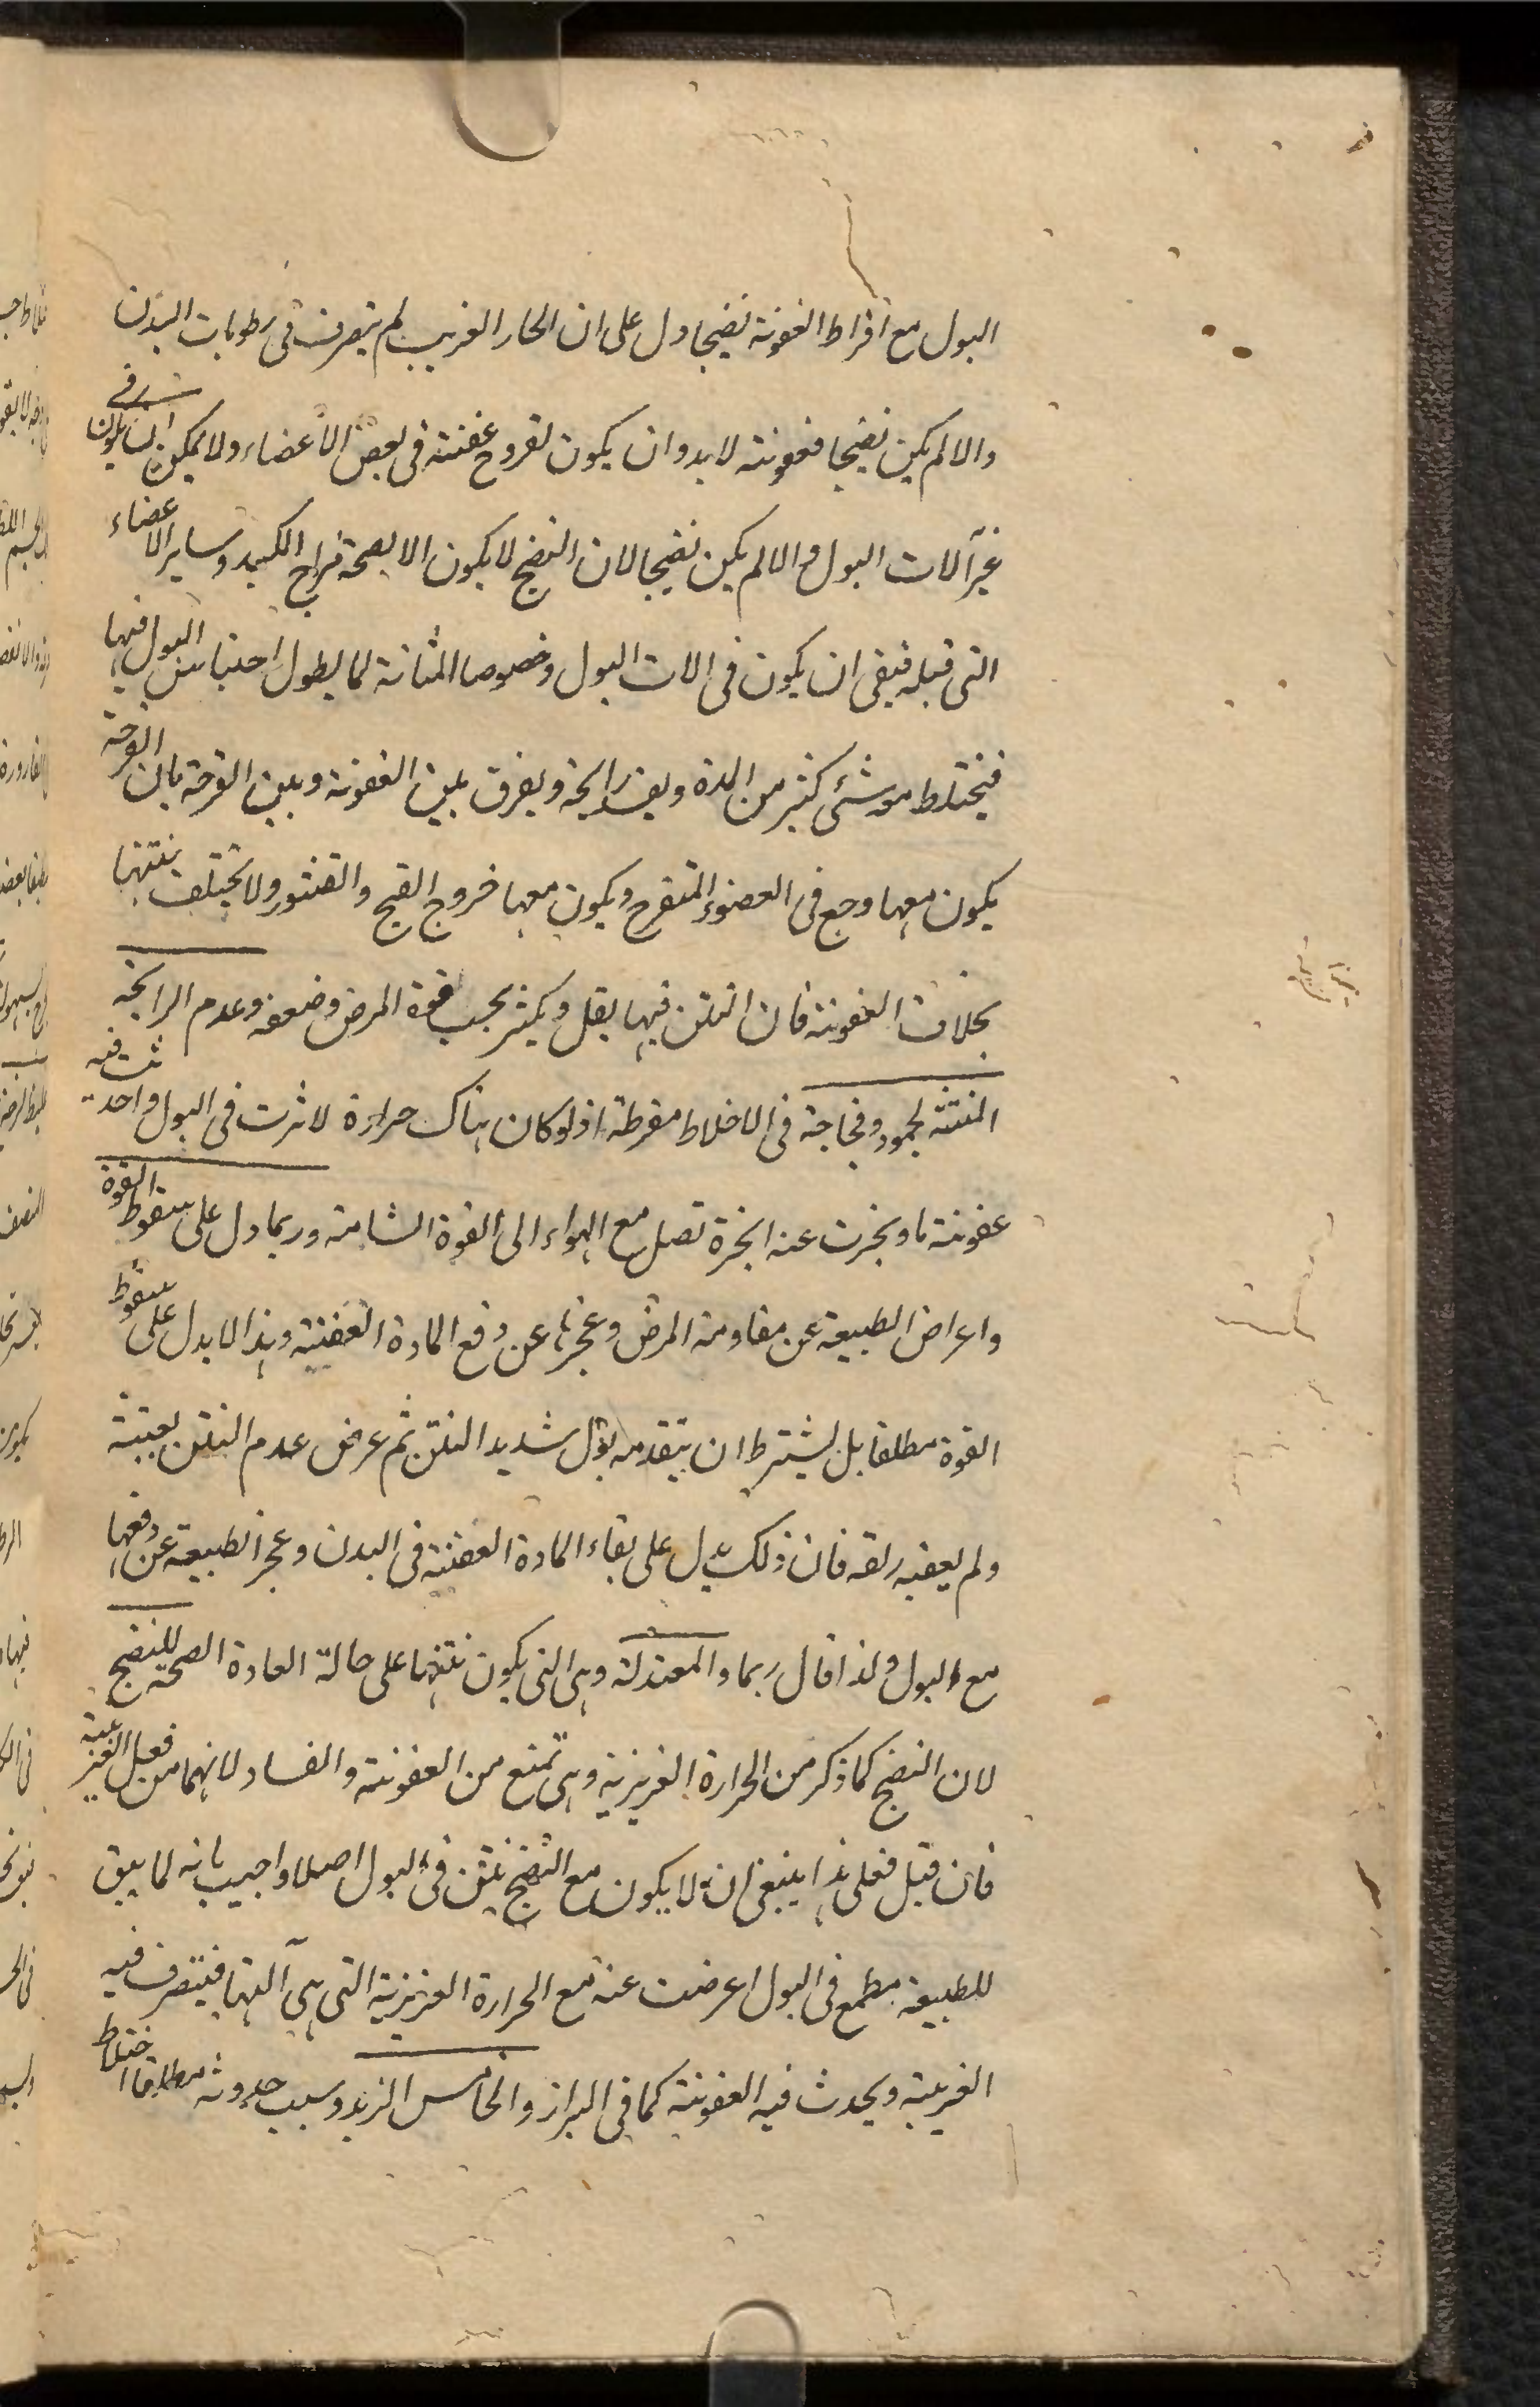 البول مع افراط العفونة نضيجا دل على ان الحار الغريب لم يتصرف فى رطوبات البدن
والا لم يكن نضيجا فعفونته لابد وان يكون لقروح عفنة فى بعض الأعضاء ولا يمكن ان يكون فى
غير آلات البول والا لم يكن نضيجا لان النضج لا يكون الا بصحة مزاج الكبد وساير الاعضاء
التى قبله فبقى ان يكون فى الات البول وخصوصا المثانة لما يطول احتباس البول فيها
فيختلط به شئ كثير من المدة ويفسد رايحة ويفرق بين العفونة وبين القرحة بان القرحة
يكون معها وجع فى العضو المتقرح ويكون معها خروج القيح والقشور ولا تختلف نتنها
بخلاف العفونة فان النتن فيها يقل ويكثر بحسب قوة المرض وضعفه وعدم الرايحة
المنتنة لجمود وفجاجة فى الاخلاط مفرطة اذ لو كان هناك حرارة لاثرت فى البول واحدثت فيه
عفونة ما وبخرت عنه ابخرة تصل مع الهواء الى القوة الشامة وربما دل على سقوط القوة
واعراض الطبيعة عن مقاومة المرض وعجزها عن دفع المادة العفنية وهذا لا يدل على سقوط
القوة مطلقا بل يشترط ان يتقدمه بول شديد النتن ثم عرض عدم النتن بغتة
ولم يعقبه راحة فان ذلك يدل على بقاء المادة العفنة فى البدن وعجز الطبيعة عن دفعها
مع البول ولذا قال ربما والمعتدلة وهى التى يكون نتنها على حالة العادة الصحية للنضج
لان النضج كما ذكر من الحرارة الغريزية وهى تمنع من العفونة والفساد لانهما من فعل الغريبة
فان قيل فعلى هذا ينبغى ان لا يكون مع النضج نتن فى البول اصلا واجيب بانه لما يبق
للطبيعة مطمع فى البول اعرضت عنه مع الحرارة الغريزية التى هى آلتها فيتصرف فيه
الغريبة ويحدث فيه العفونة كما فى البراز والخامس الزبد وسبب حدوثه مطلقا اختلاط